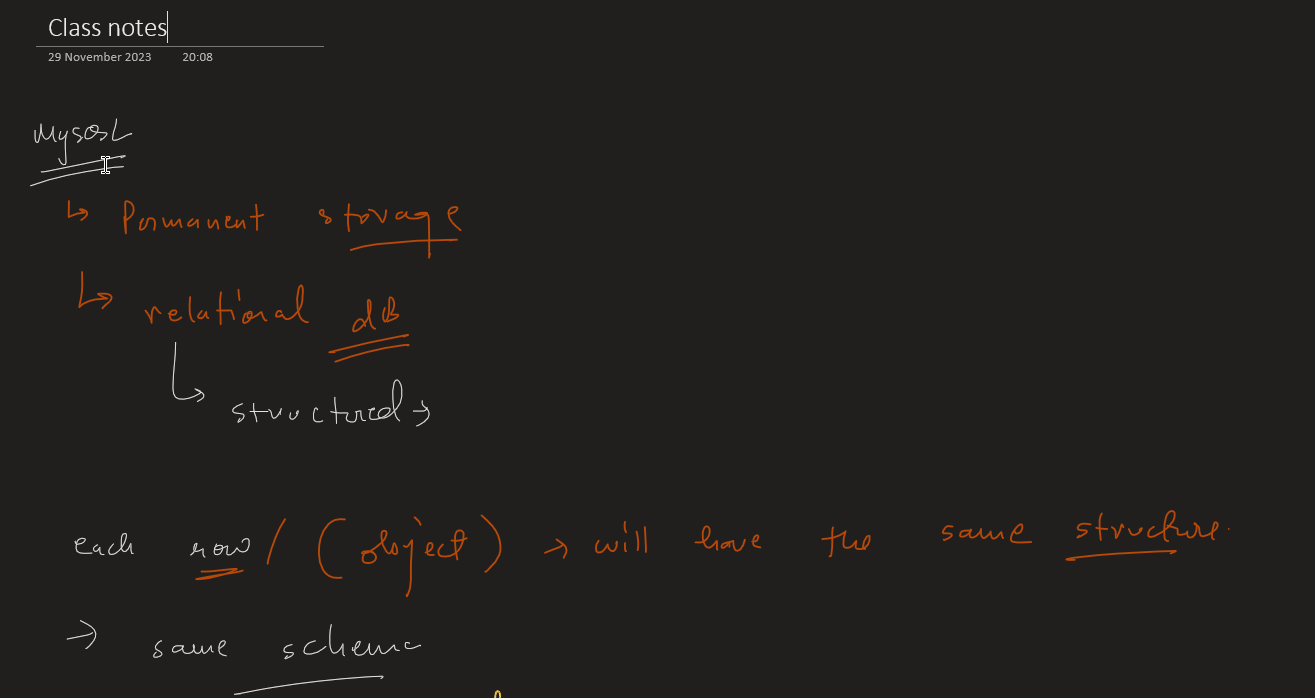 Class notes
29 November 2023 20:08
MySQL
↳ Permanent storage
↳ relational dB
↳ structured →
each row / (object) → will have the same structure.
→ same schema